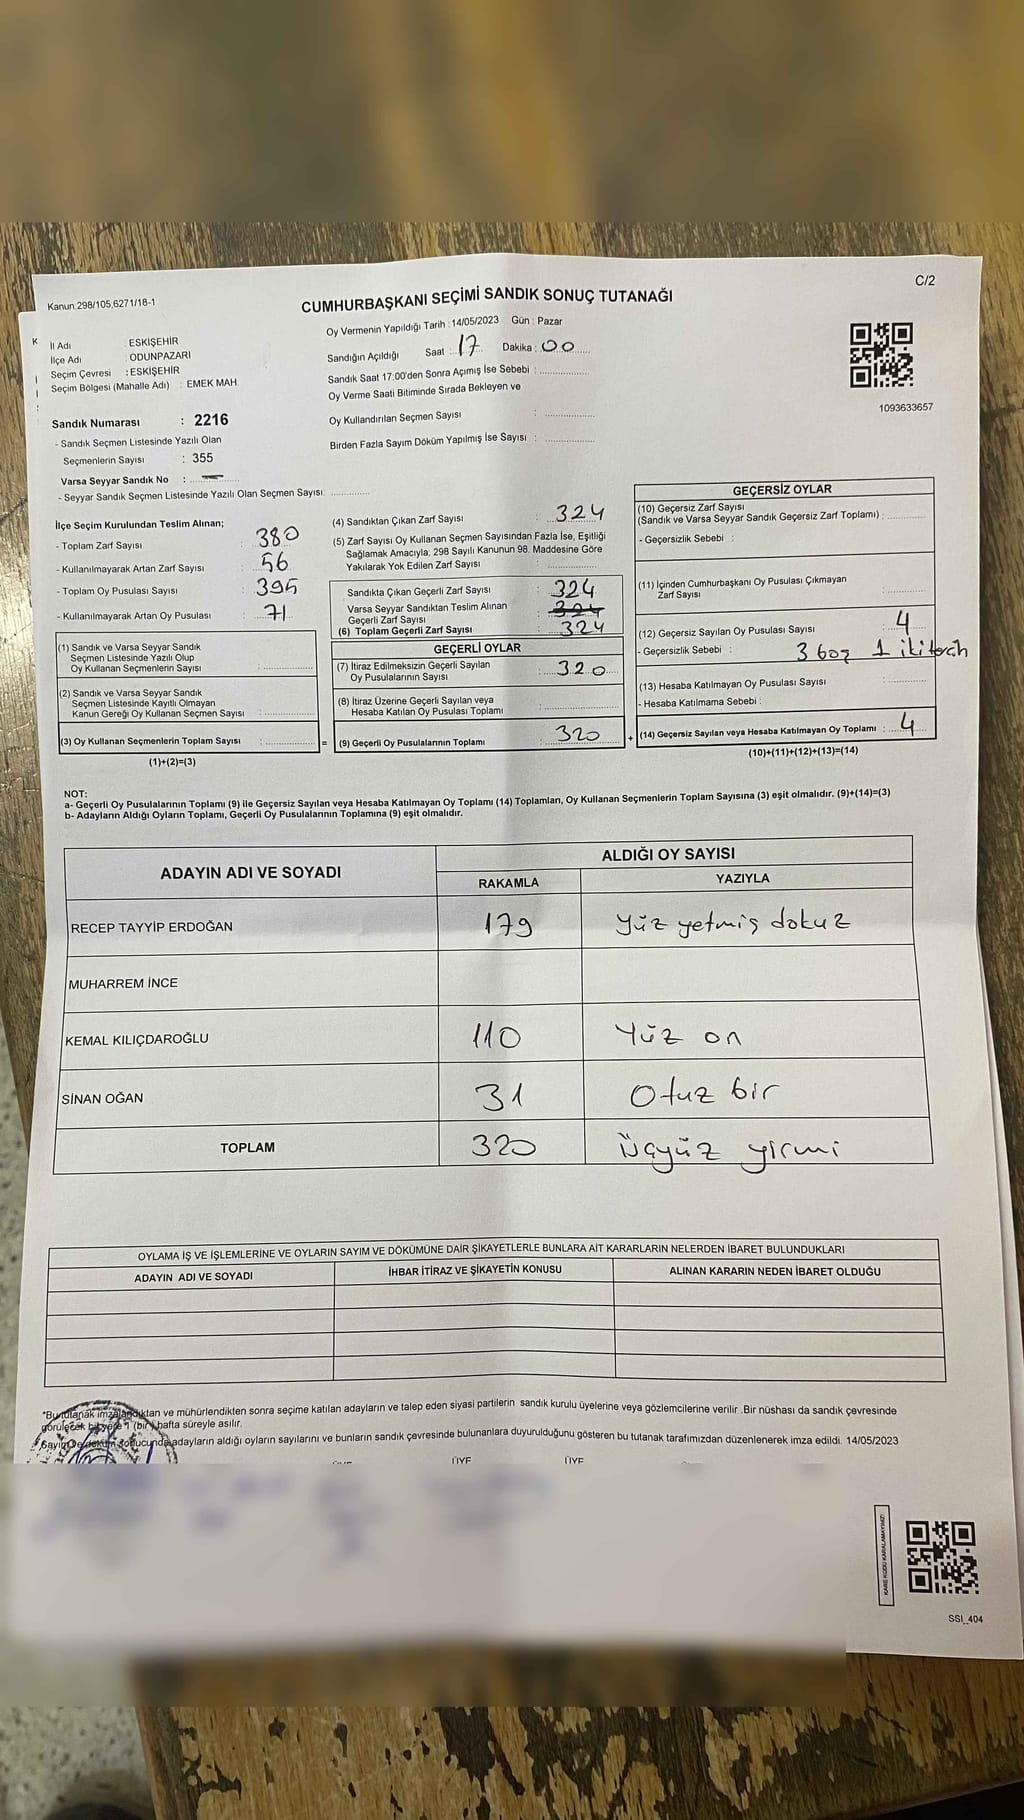 C/2
Kanun 298/105,6271/18-1
CUMHURBAŞKANI SEÇİMİ SANDIK SONUÇ TUTANAĞI
İl Adı ESKİŞEHİR
İlçe Adı ODUNPAZARI
Seçim Çevresi : ESKİŞEHİR
Seçim Bölgesi (Mahalle Adı) : EMEK MAH.
Sandık Numarası : 2216
- Sandık Seçmen Listesinde Yazılı Olan
Seçmenlerin Sayısı : 355
Varsa Seyyar Sandık No : —
- Seyyar Sandık Seçmen Listesinde Yazılı Olan Seçmen Sayısı:
Oy Vermenin Yapıldığı Tarih : 14/05/2023 Gün : Pazar
Sandığın Açıldığı Saat : 17 Dakika : 00
Sandık Saat 17:00'den Sonra Açımış İse Sebebi :
Oy Verme Saati Bitiminde Sırada Bekleyen ve
Oy Kullandırılan Seçmen Sayısı :
Birden Fazla Sayım Döküm Yapılmış İse Sayısı :
1093633657
İlçe Seçim Kurulundan Teslim Alınan;
- Toplam Zarf Sayısı : 380
- Kullanılmayarak Artan Zarf Sayısı : 56
- Toplam Oy Pusulası Sayısı : 395
- Kullanılmayarak Artan Oy Pusulası : 71
(1) Sandık ve Varsa Seyyar Sandık
Seçmen Listesinde Yazılı Olup
Oy Kullanan Seçmenlerin Sayısı :
(2) Sandık ve Varsa Seyyar Sandık
Seçmen Listesinde Kayıtlı Olmayan
Kanun Gereği Oy Kullanan Seçmen Sayısı :
(3) Oy Kullanan Seçmenlerin Toplam Sayısı :
(1)+(2)=(3)
(4) Sandıktan Çıkan Zarf Sayısı : 324
(5) Zarf Sayısı Oy Kullanan Seçmen Sayısından Fazla İse, Eşitliği
Sağlamak Amacıyla; 298 Sayılı Kanunun 98. Maddesine Göre
Yakılarak Yok Edilen Zarf Sayısı :
Sandıkta Çıkan Geçerli Zarf Sayısı : 324
Varsa Seyyar Sandıktan Teslim Alınan
Geçerli Zarf Sayısı : 324
(6) Toplam Geçerli Zarf Sayısı : 324
GEÇERLİ OYLAR
(7) İtiraz Edilmeksizin Geçerli Sayılan
Oy Pusulalarının Sayısı : 320
(8) İtiraz Üzerine Geçerli Sayılan veya
Hesaba Katılan Oy Pusulası Toplamı :
= (9) Geçerli Oy Pusulalarının Toplamı : 320
GEÇERSİZ OYLAR
(10) Geçersiz Zarf Sayısı
(Sandık ve Varsa Seyyar Sandık Geçersiz Zarf Toplamı) :
- Geçersizlik Sebebi :
(11) İçinden Cumhurbaşkanı Oy Pusulası Çıkmayan
Zarf Sayısı :
(12) Geçersiz Sayılan Oy Pusulası Sayısı : 4
- Geçersizlik Sebebi : 3 boş 1 iki tercih
(13) Hesaba Katılmayan Oy Pusulası Sayısı :
- Hesaba Katılmama Sebebi :
+ (14) Geçersiz Sayılan veya Hesaba Katılmayan Oy Toplamı : 4
(10)+(11)+(12)+(13)=(14)
NOT:
a- Geçerli Oy Pusulalarının Toplamı (9) ile Geçersiz Sayılan veya Hesaba Katılmayan Oy Toplamı (14) Toplamları, Oy Kullanan Seçmenlerin Toplam Sayısına (3) eşit olmalıdır. (9)+(14)=(3)
b- Adayların Aldığı Oyların Toplamı, Geçerli Oy Pusulalarının Toplamına (9) eşit olmalıdır.
ADAYIN ADI VE SOYADI
ALDIĞI OY SAYISI
RAKAMLA YAZIYLA
RECEP TAYYİP ERDOĞAN 179 Yüz yetmiş dokuz
MUHARREM İNCE
KEMAL KILIÇDAROĞLU 110 Yüz on
SİNAN OĞAN 31 Otuz bir
TOPLAM 320 Üçyüz yirmi
OYLAMA İŞ VE İŞLEMLERİNE VE OYLARIN SAYIM VE DÖKÜMÜNE DAİR ŞİKAYETLERLE BUNLARA AİT KARARLARIN NELERDEN İBARET BULUNDUKLARI
ADAYIN ADI VE SOYADI İHBAR İTİRAZ VE ŞİKAYETİN KONUSU ALINAN KARARIN NEDEN İBARET OLDUĞU
*Bu tutanak imzalandıktan ve mühürlendikten sonra seçime katılan adayların ve talep eden siyasi partilerin sandık kurulu üyelerine veya gözlemcilerine verilir .Bir nüshası da sandık çevresinde
görülecek bir yere 1 (bir) hafta süreyle asılır.
* Sayım ve döküm sonucunda adayların aldığı oyların sayılarını ve bunların sandık çevresinde bulunanlara duyurulduğunu gösteren bu tutanak tarafımızdan düzenlenerek imza edildi. 14/05/2023
ÜYE ÜYE
KARE KODU KARALAMAYINIZ!
SSI_404